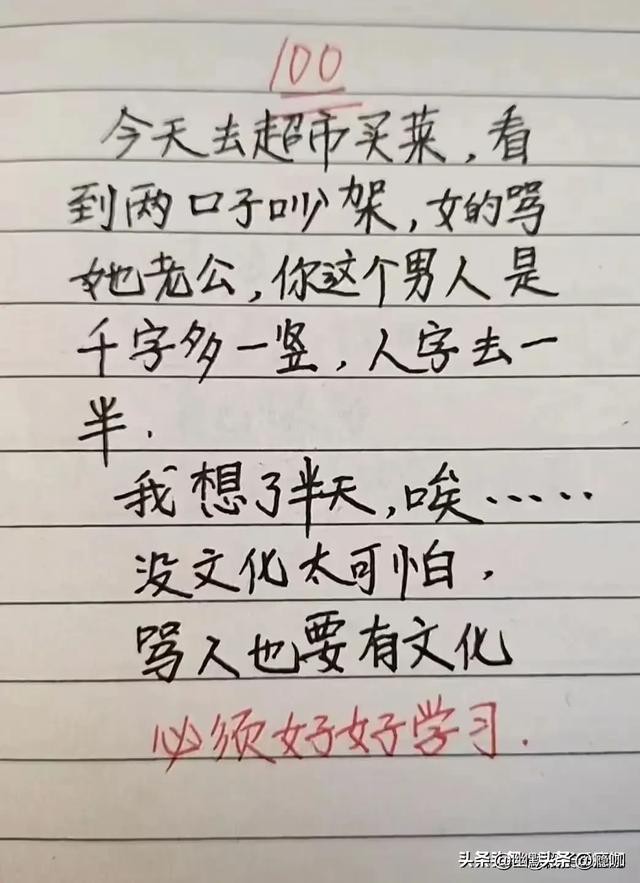 100
今天去超市买菜，看
到两口子吵架，女的骂
她老公，你这个男人是
千字多一竖，人字去一
半.
我想了半天，唉……
没文化太可怕，
骂人也要有文化
必须好好学习.